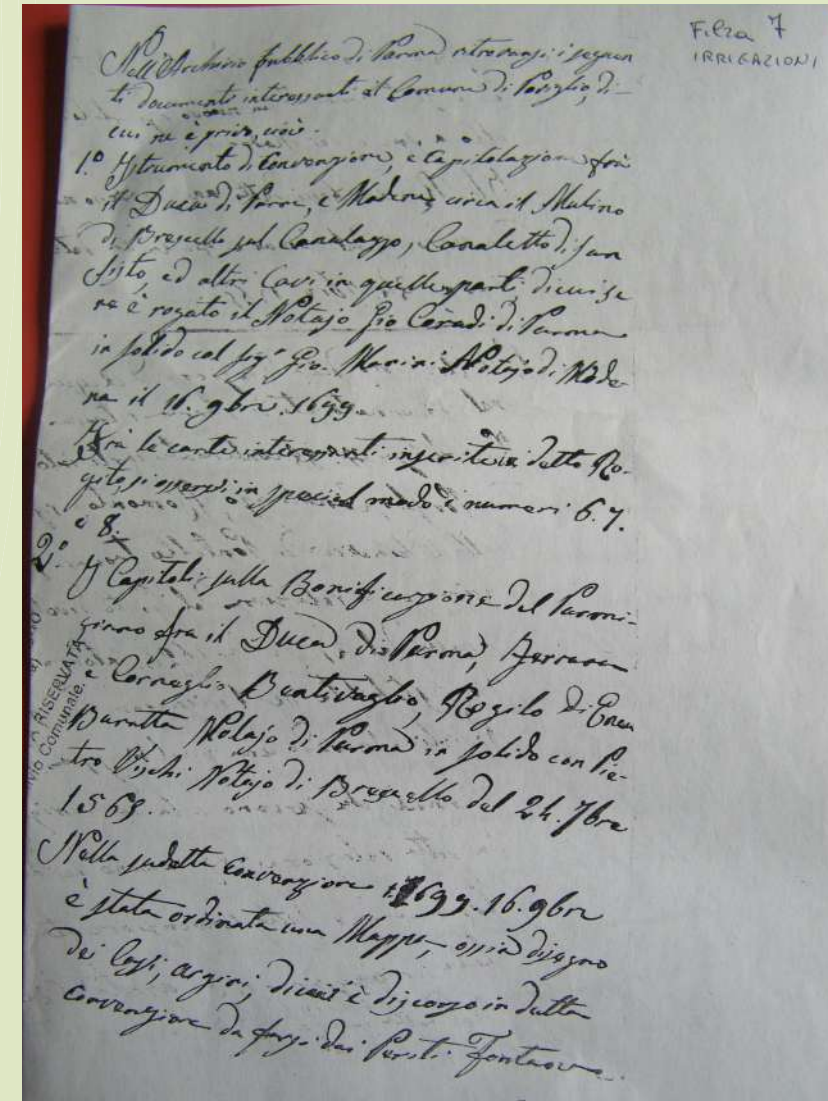 Filza 7
IRRIGAZIONI
Nell'Archivio pubblico di Parma ritrovansi i seguen
ti documenti interessanti il Comune di Poviglio, di
cui ne è privo, cioè.
1.° Istrumento di Convenzione, e Capitolazione frà
il Duca di Parma, e Modena, circa il Mulino
di Brescello sul Canalazzo, Canaletto di San
Sisto, ed altri Cavi in quelle parti, di cui se
ne è rogato il Notajo Gio Ceradi di Parma
in solido col Sigr Gio. Marini Notajo di Mode-
na il 16. 9bre. 1699.
Frà le carte interessanti inserite in detto Ro-
gito, si osservi in special modo i numeri 6. 7.
e 8.
2.° I Capitoli sulla Bonificazione del Parmi-
giano fra il Duca di Parma, Ferrara
e Cornaglio Bentivoglio, Rogito di
Baratta Notajo di Parma in solido con Pie-
tro Vischi Notajo di Brescello del 24. 7bre
1569.
Nella sudetta Convenzione 1699. 16. 9bre
è stata ordinata una Mappa, ossia disegno
dei Cavi, argini, di cui è discorso in detta
Convenzione da farsi dai Periti
A RISERVATA
vio Comunale.